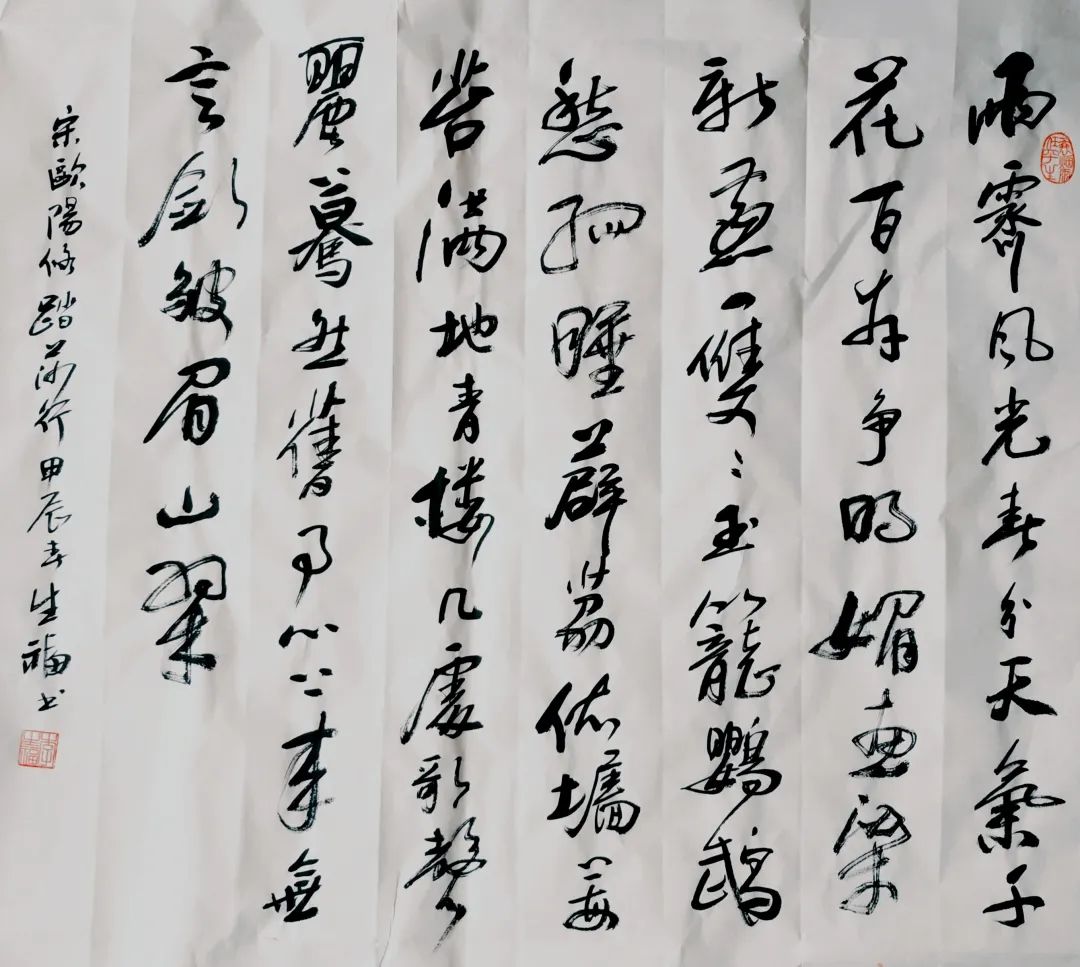 雨霽風光春分天氣千
花百卉争明媚畫梁
新燕一雙〻玉籠鸚鵡
愁孤睡薜荔依墻莓
苔满地青楼几處歌聲
麗驀然舊事心上来無
言斂皺眉山翠
宋歐陽修踏莎行甲辰春生福书